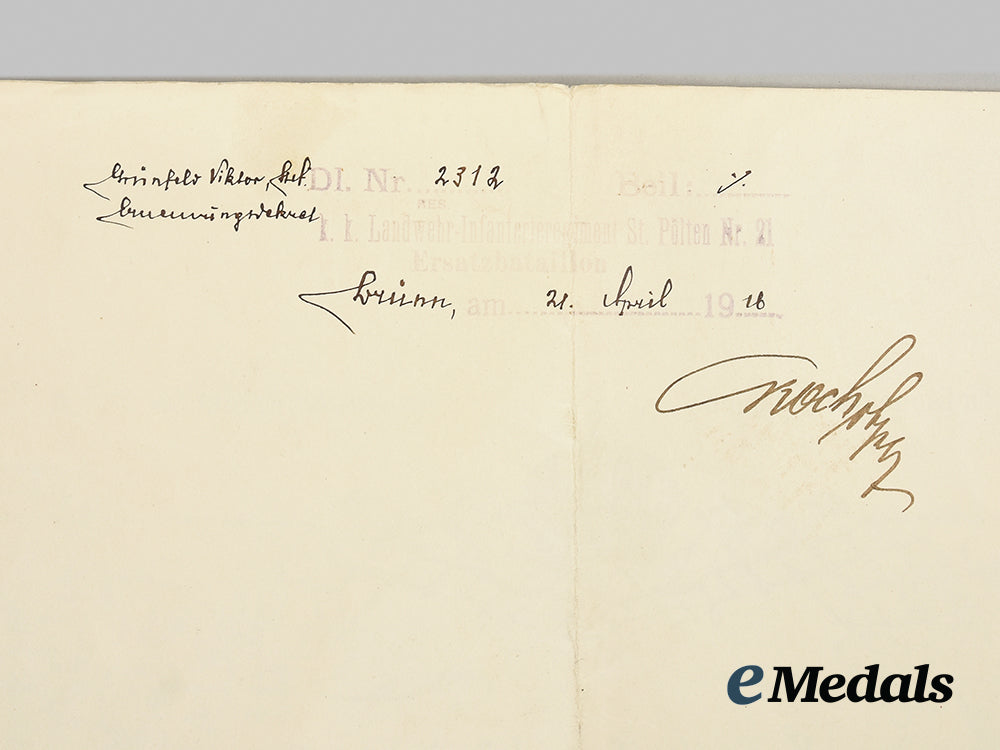 Grünfeld Viktor, DI. Nr. 2312 Beil: ·/.
Ernennungsdekret
RES.
k. k. Landwehr-Infanterieregiment St. Pölten Nr. 21
Ersatzbataillon
Brünn, am 21. April 1916
eMedals